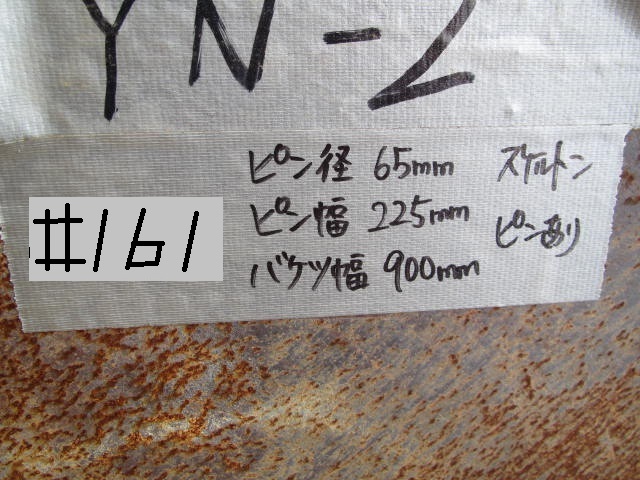 YN-2
#161
ピン径 65mm
ピン幅 225mm
バケツ幅 900mm
スケルトン
ピン有り